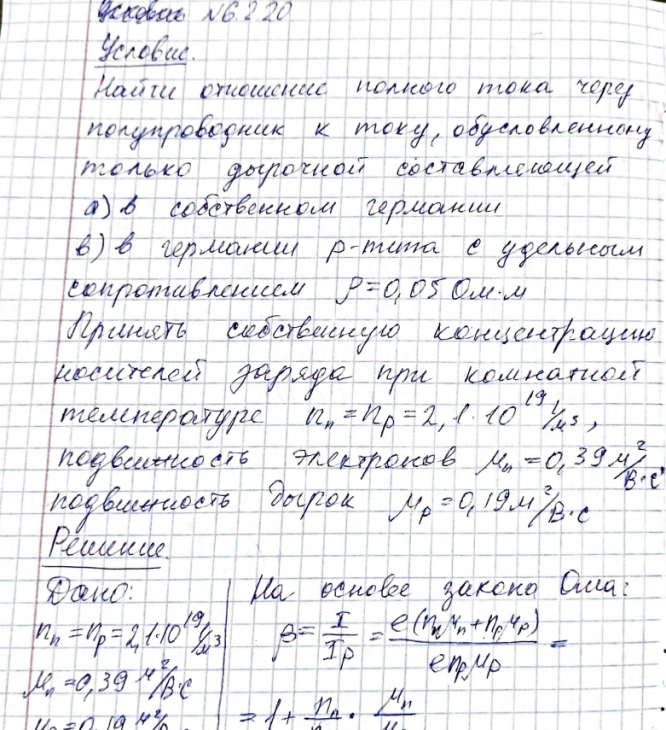 №6.220
Условие.
Найти отношение полного тока через
полупроводник к току, обусловленному
только дырочной составляющей
а) в собственном германии
в) в германии p-типа с удельным
сопротивлением ρ=0,05 Ом·м
Принять собственную концентрацию
носителей заряда при комнатной
температуре nn=np=2,1·10^19 1/м³,
подвижность электронов μn=0,39 м²/В·с
подвижность дырок μp=0,19 м²/В·с
Решение.
Дано:
nn=np=2,1·10^19 1/м³
μn=0,39 м²/В·с
На основе закона Ома:
β=I/Ip=e(nnμn+npμp)/enpμp=
=1+